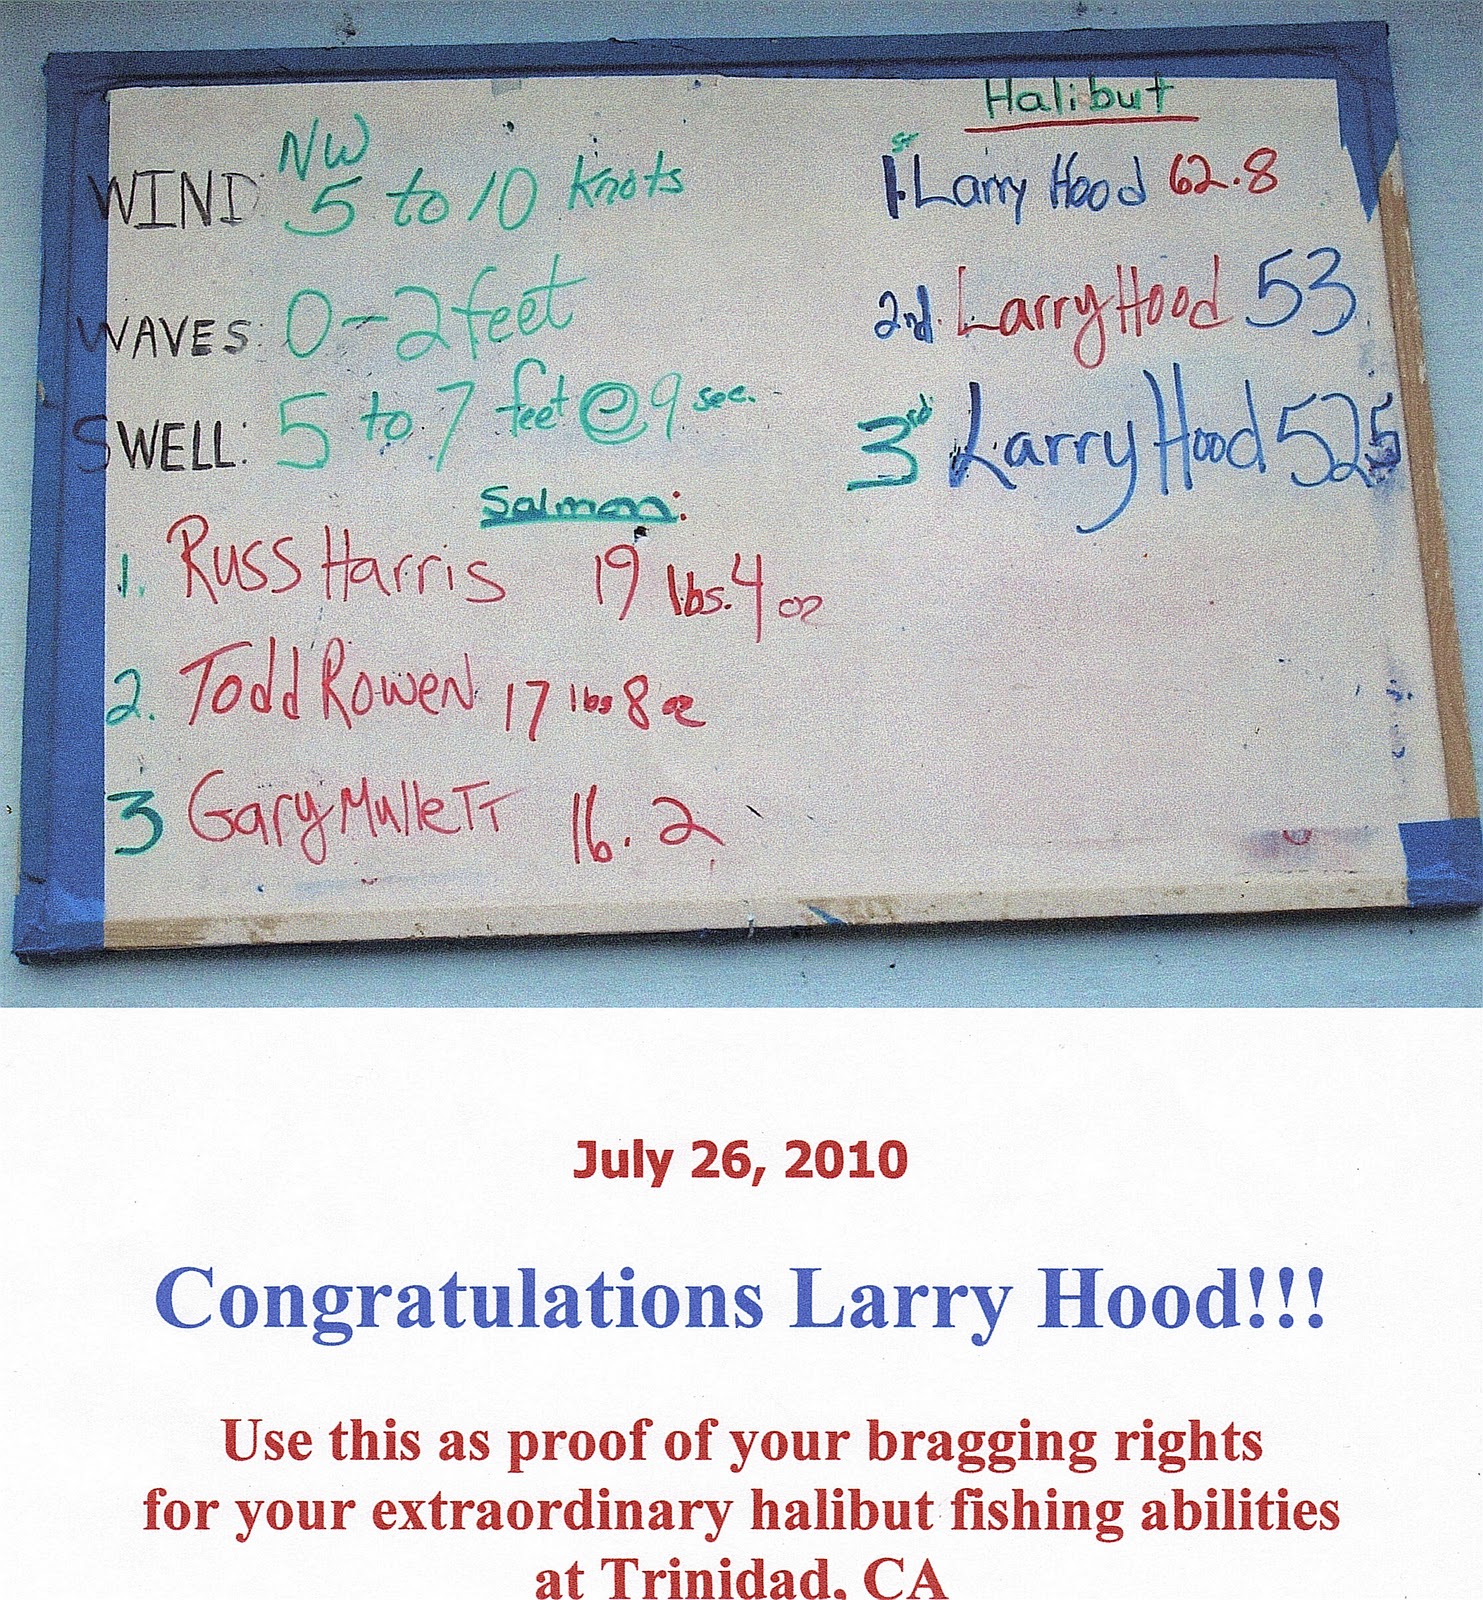 WIND: NW
5 to 10 knots
WAVES: 0-2 feet
SWELL: 5 to 7 feet @ 9 sec.
Salmon:
1. Russ Harris 19 lbs. 4 oz
2. Todd Rowen 17 lbs 8 oz
3 Gary Mullett 16.2
Halibut
1st Larry Hood 62.8
2nd. Larry Hood 53
3rd Larry Hood 525
July 26, 2010
Congratulations Larry Hood!!!
Use this as proof of your bragging rights
for your extraordinary halibut fishing abilities
at Trinidad, CA